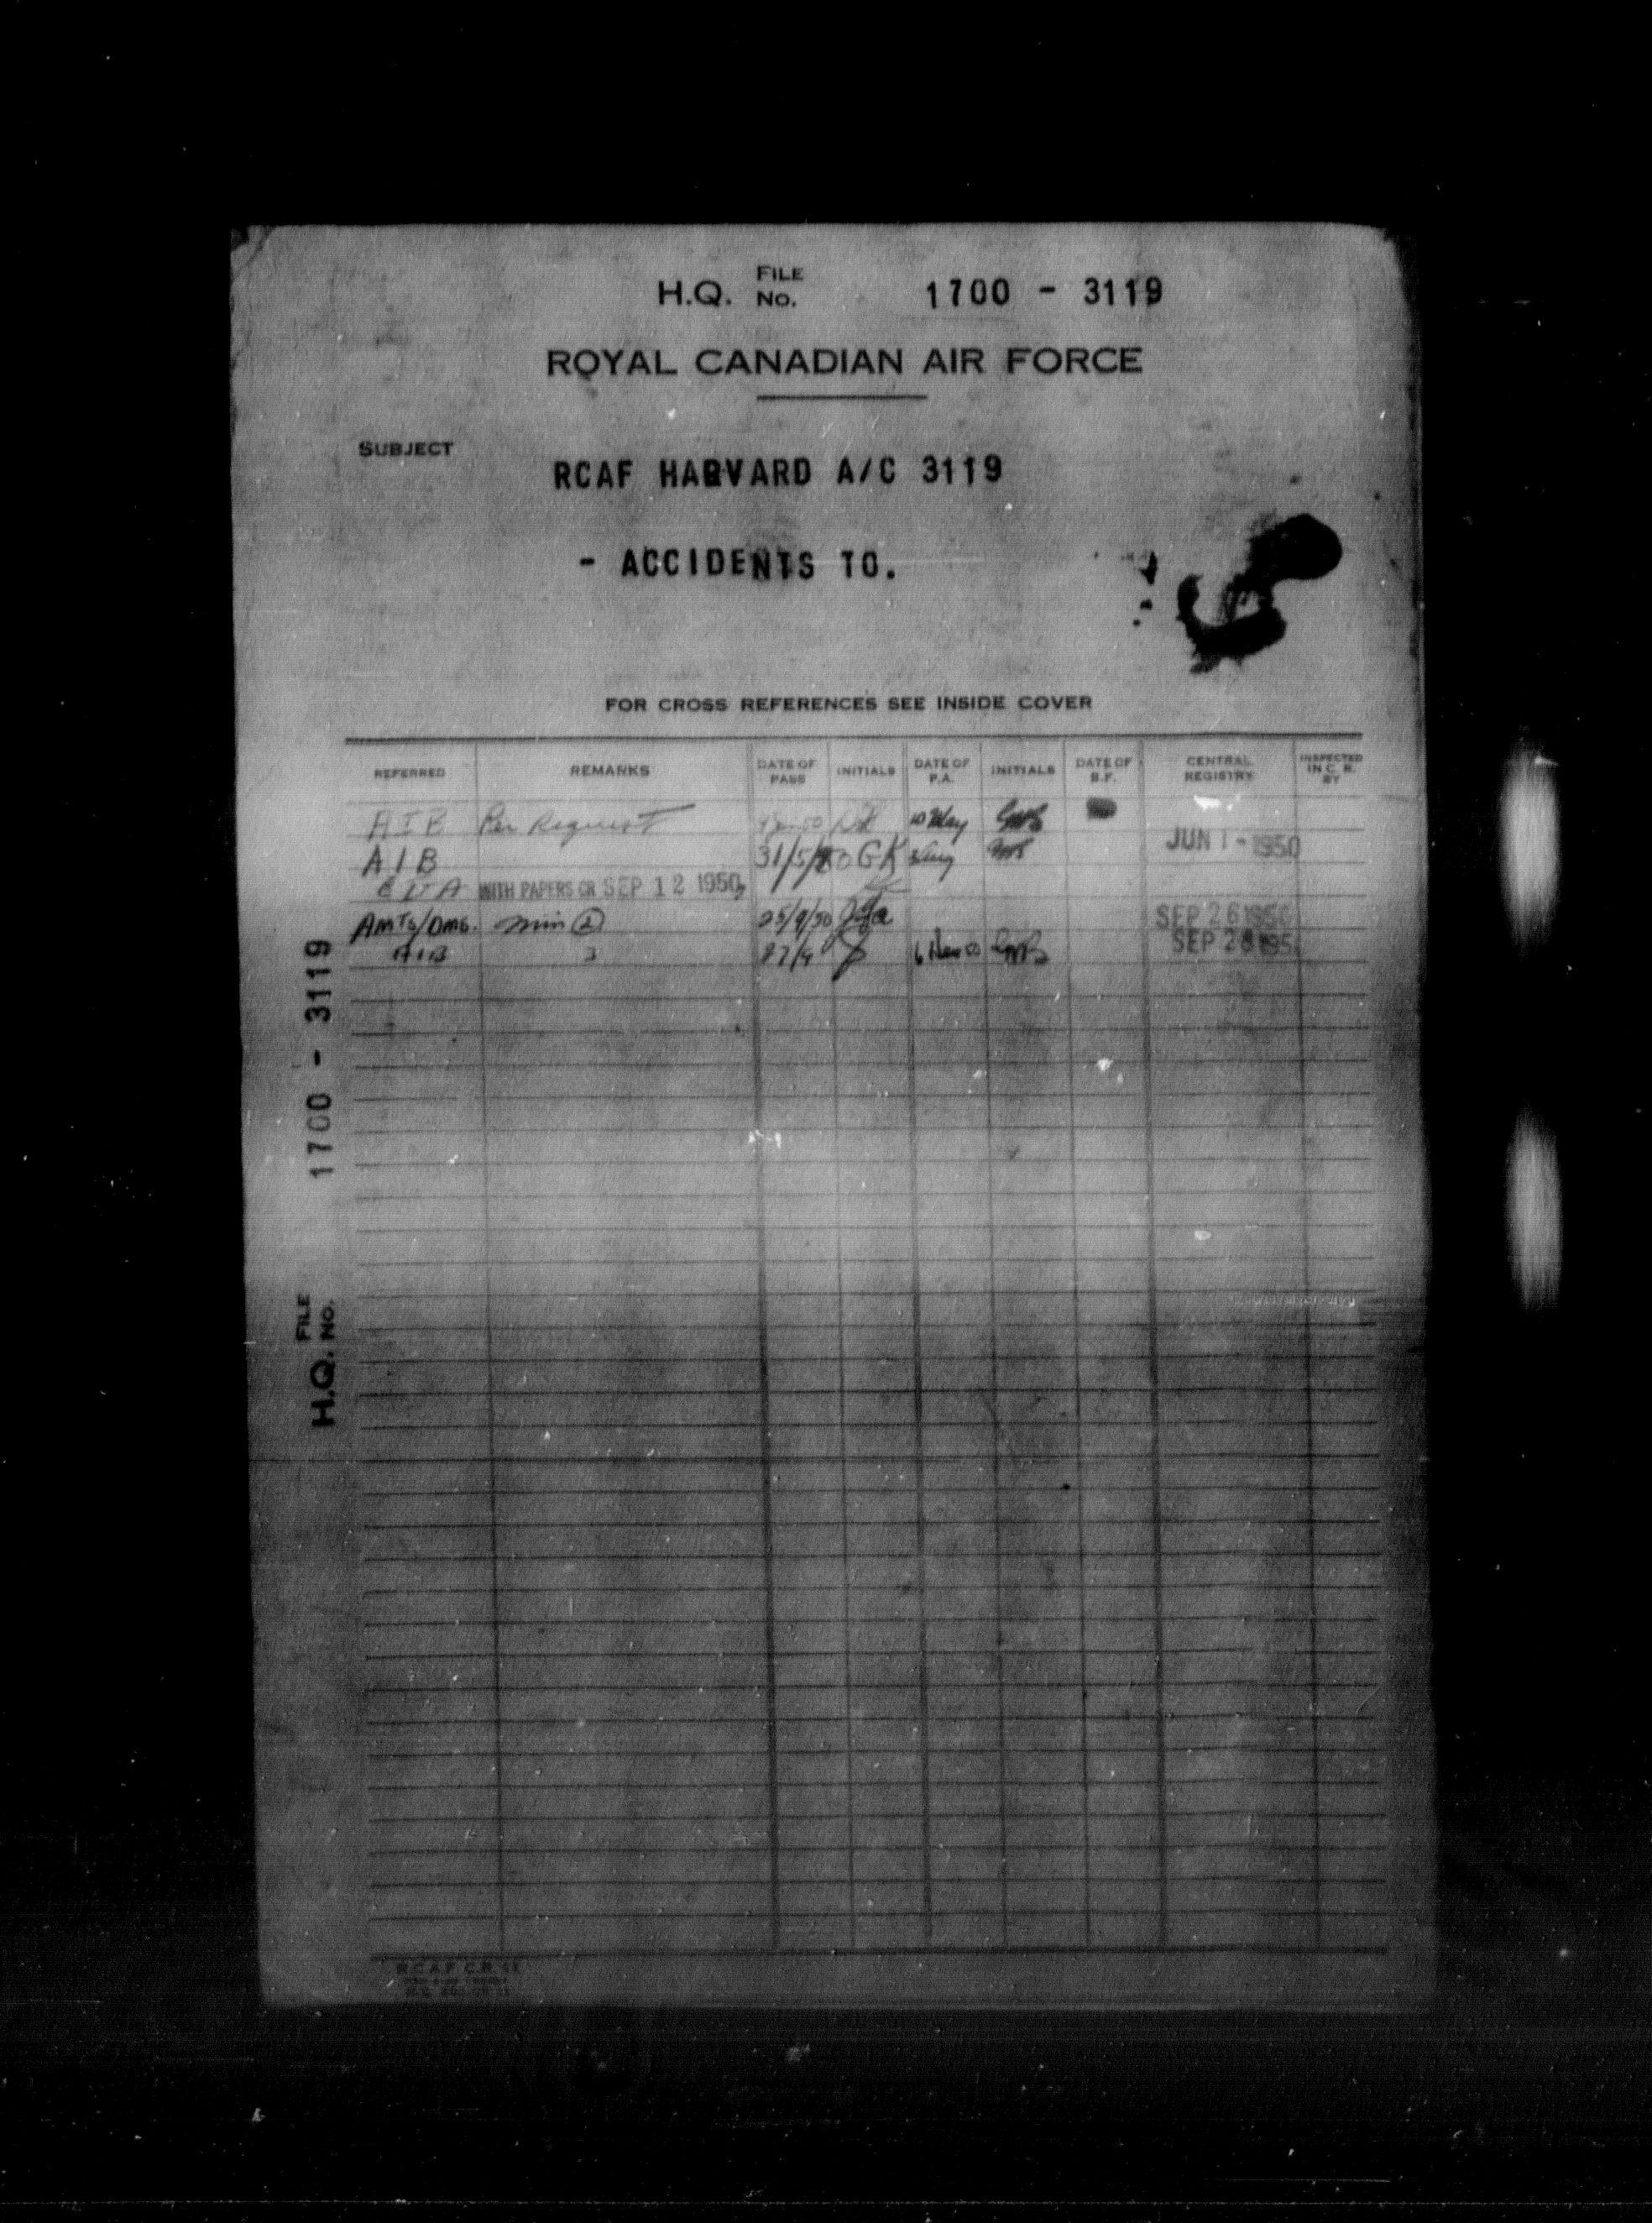 H.Q. FILE No. 1700 - 3119
ROYAL CANADIAN AIR FORCE
SUBJECT
RCAF HARVARD A/C 3119
- ACCIDENTS TO.
FOR CROSS REFERENCES SEE INSIDE COVER
REFERRED REMARKS DATE OF PASS INITIALS DATE OF P.A. INITIALS DATE OF B.F. CENTRAL REGISTRY INSPECTED IN C. R. BY
AIB Per Request 10 May
AIB 31/5/50 GK JUN 1 - 1950
WITH PAPERS CR SEP 12 1950
AMTS/DMS. min 2 25/9/50 SEP 26 1950
AIB 3 27/9 SEP 28 195
H.Q. FILE No. 1700 - 3119
R.C.A.F. C.R.